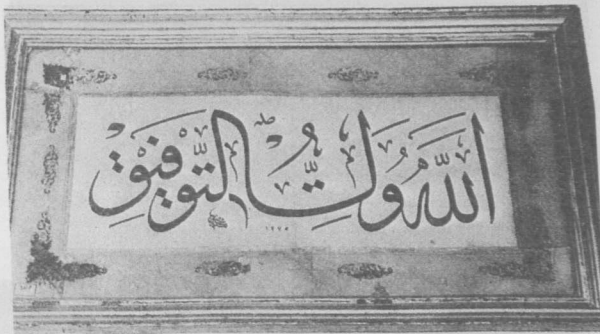 اللهُ وَلِيُّ التَّوْفِيقِ